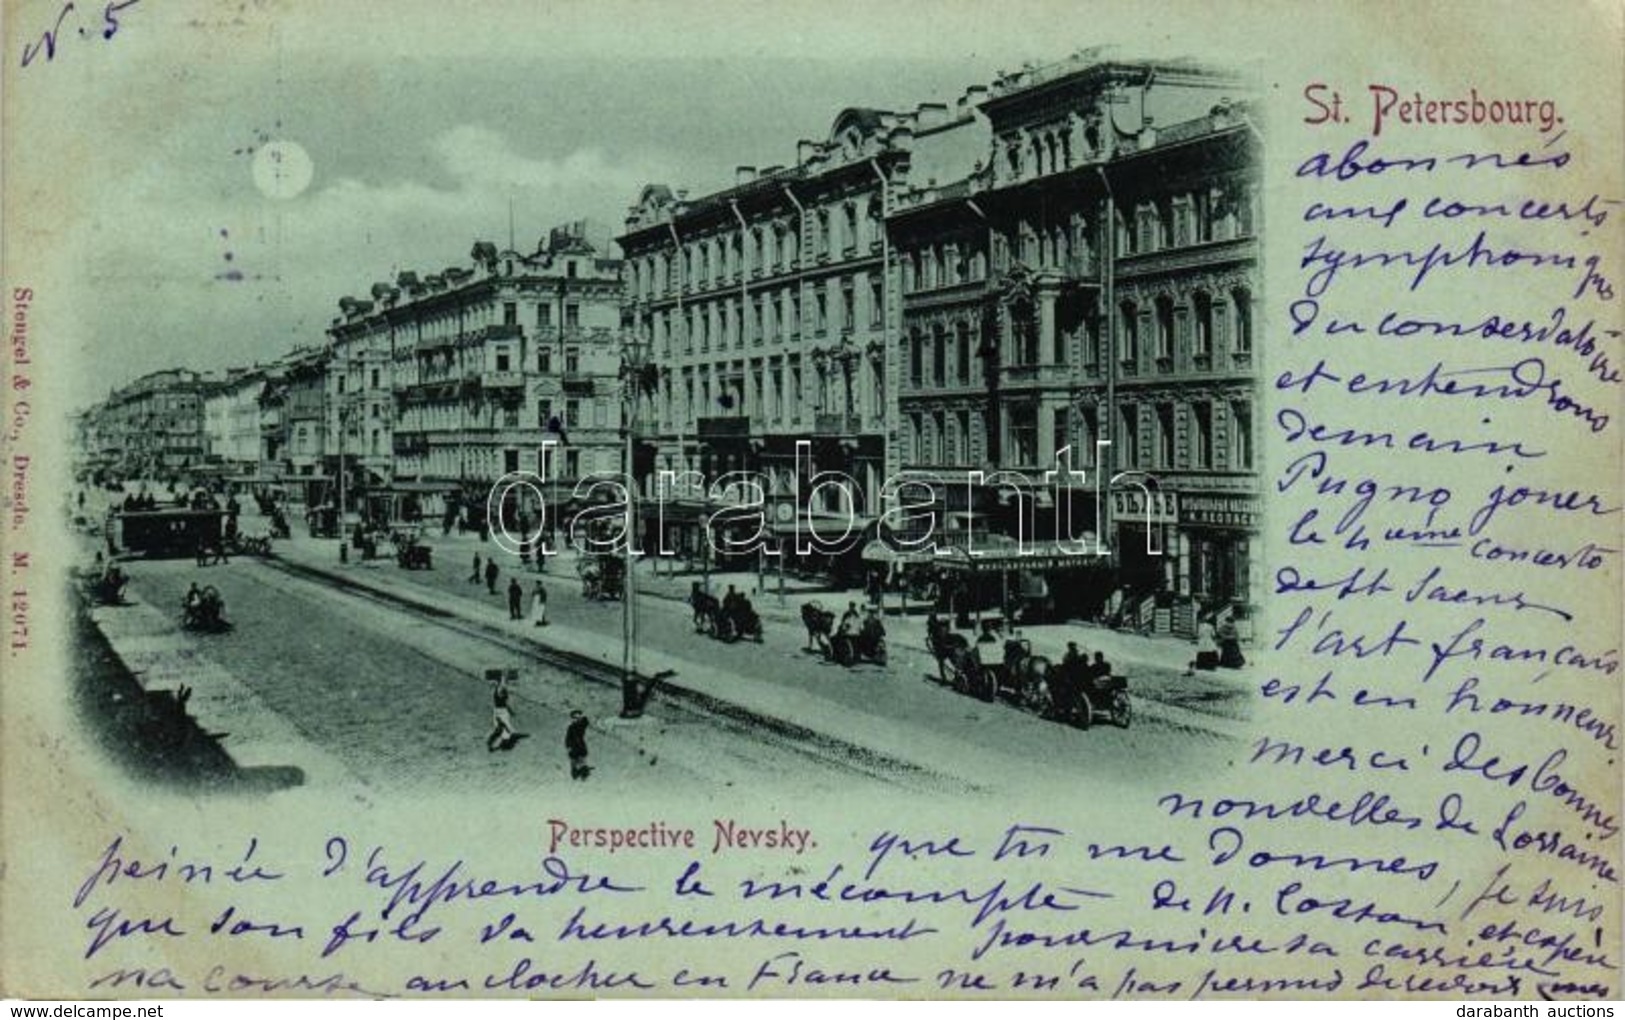 N. 5
St. Petersbourg.
abonnés
aux concerts
symphoniques
du conservatoire
et entendrons
demain
Pugno jouer
le nième concerto
de St Saens
l'art français
est en honneur
merci des bonnes
nouvelles de Lorraine
que tu me donnes, je suis
peinée d'apprendre le mécompte de N. et espère
que son fils va heureusement poursuivre sa carrière
ma course au clocher en France ne m'a pas permis de revoir mes
Perspective Nevsky.
Stengel & Co., Dresde. M. 12071.
darabanth
darabanth auctions